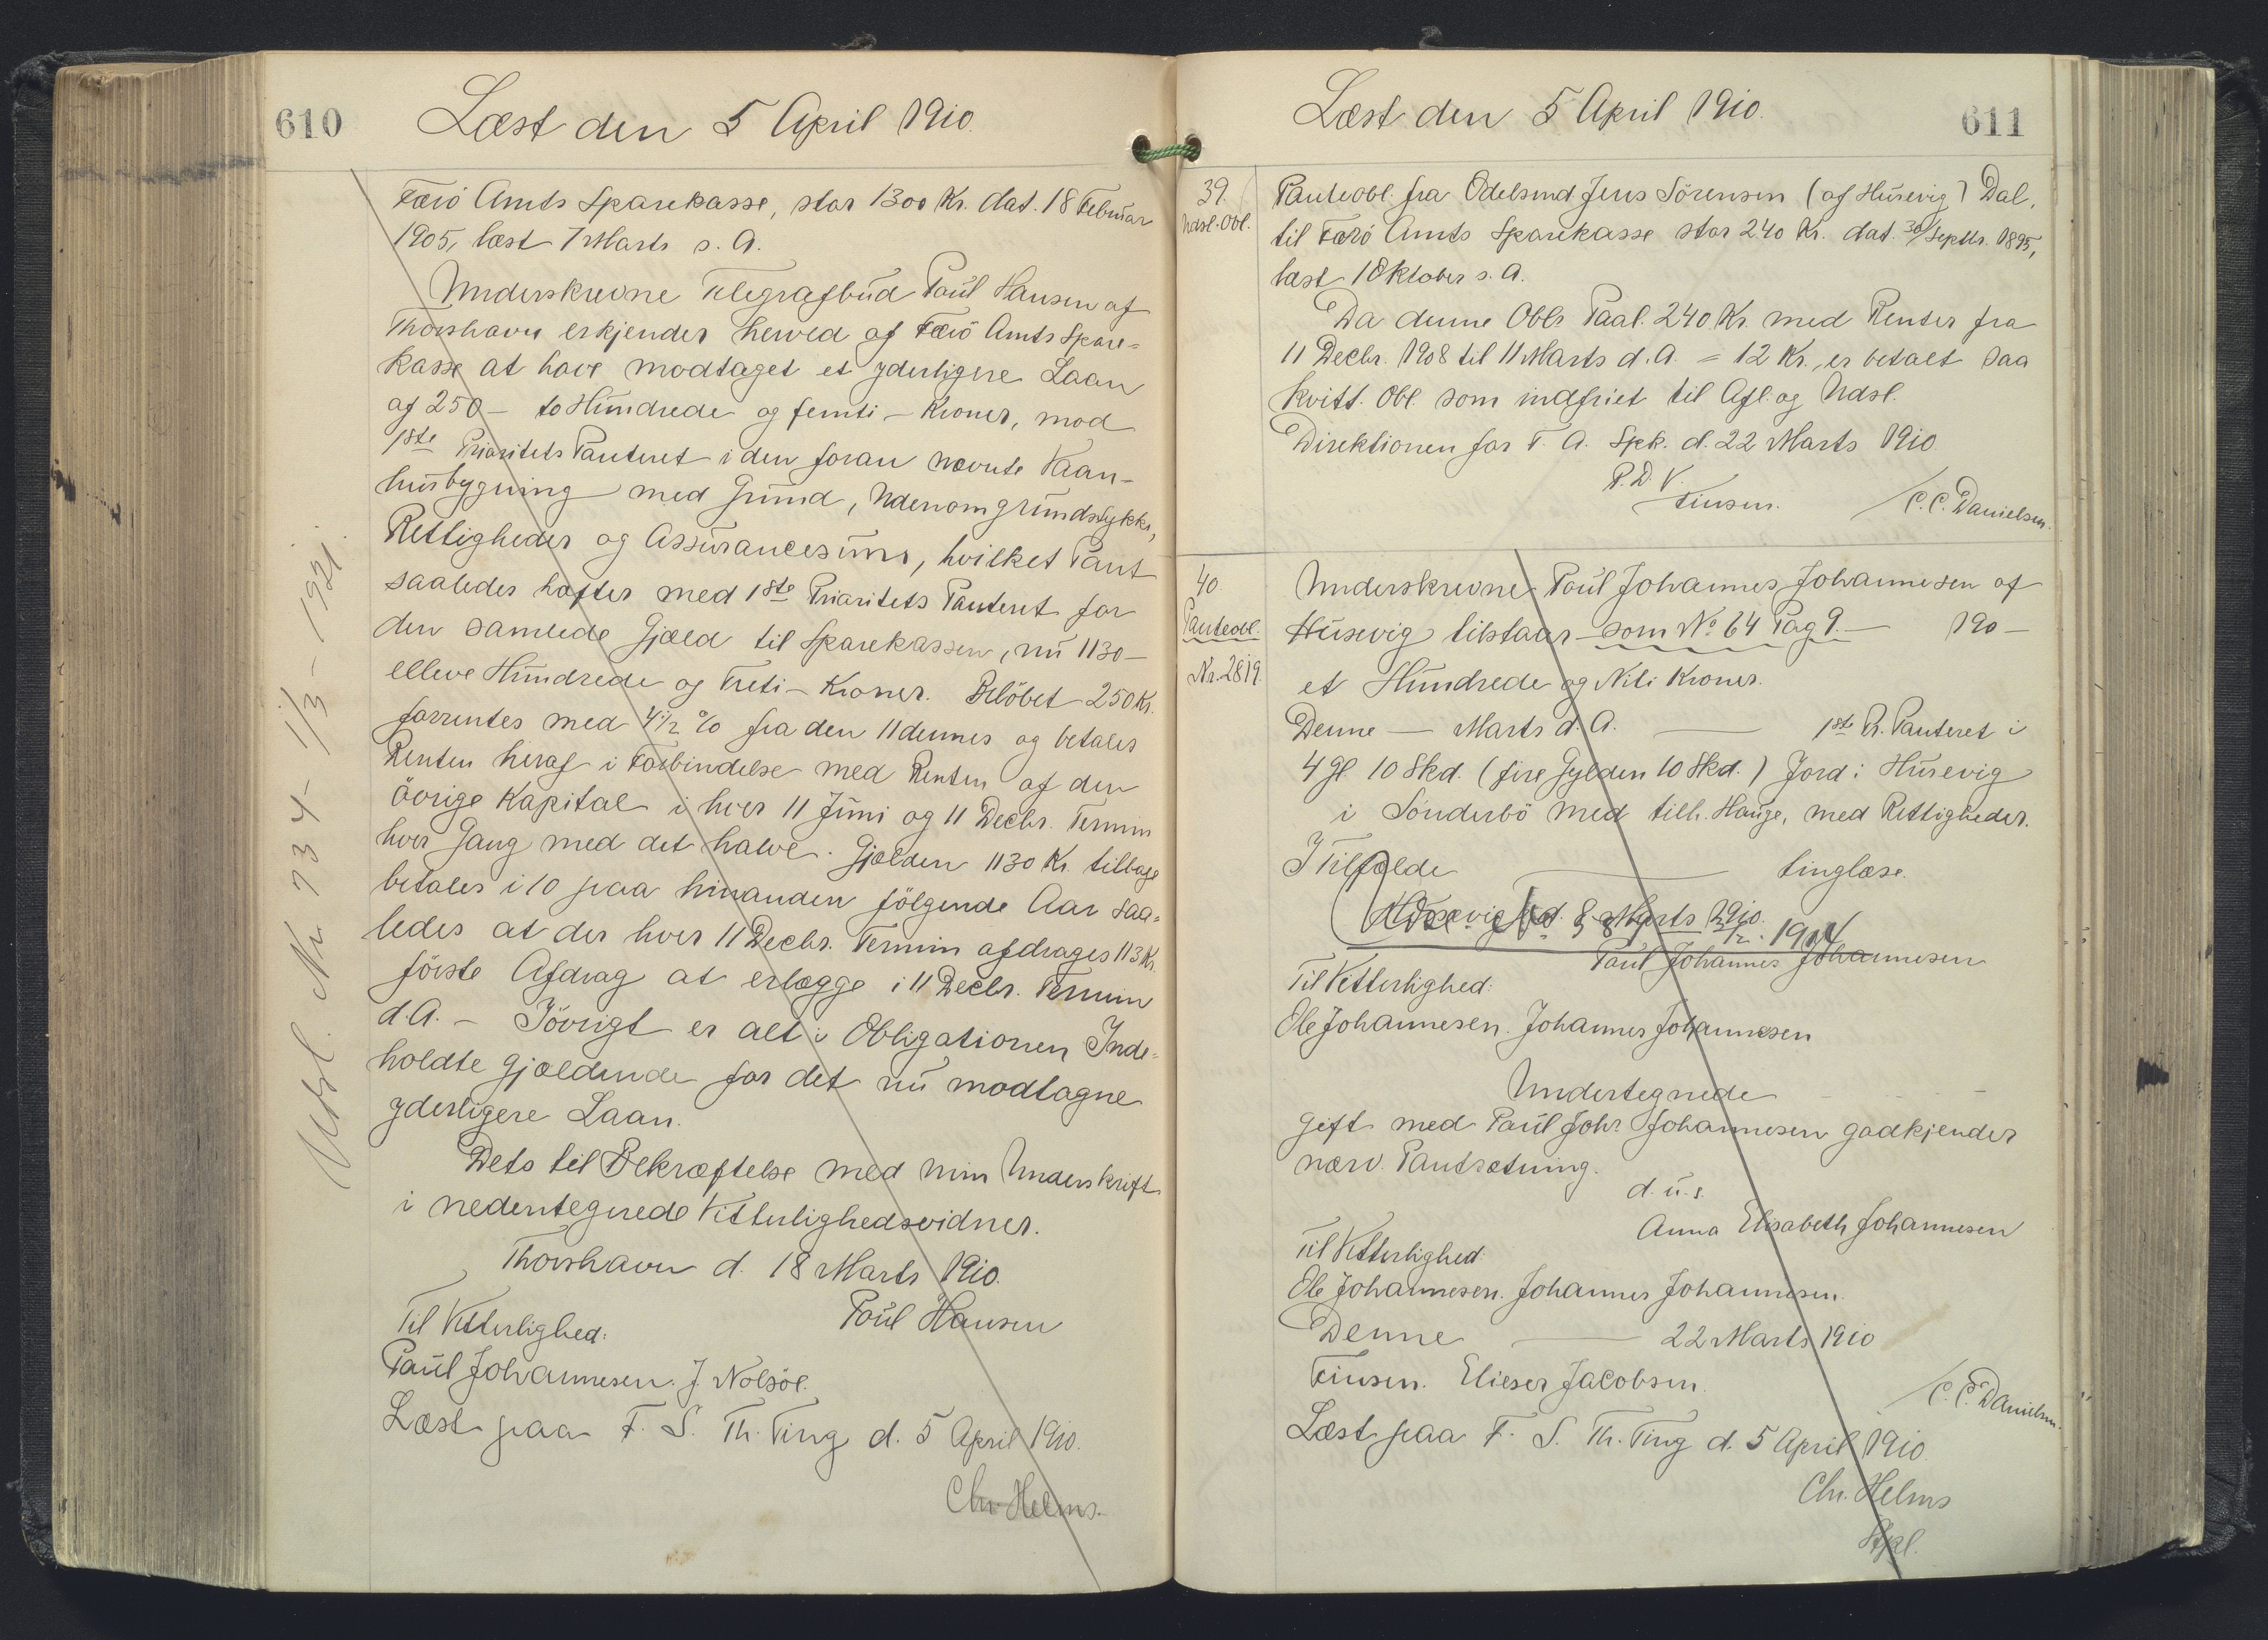 610
Læst den 5 April 1910.
Færö Amts Sparekasse, stor 1300 Kr. dat. 18 Februar
1905, læst 7 Marts s. A.
Underskrevne Telegrafbud Poul Hansen af
Thorshavn erkjender herved af Færö Amts Spare=
kasse at have modtaget et yderligere Laan
af 250 - to Hundrede og femti - Kroner, mod
1ste Prioritets Panteret i den foran nævnte Vaan-
husbygning med Grund, Udenomgrundstykke,
Rettigheder og Assurancesum, hvilket Pant
saaledes hæfter med 1ste Prioritets Panteret for
den samlede Gjæld til Sparekassen, nu 1130 -
elleve Hundrede og Treti - Kroner. Belöbet 250 Kr.
forrentes med 4 1/2 % fra den 11 dennes og betales
Renten heraf i Forbindelse med Renten af den
övrige Kapital i hver 11 Juni og 11 Decbr. Termin
hver Gang med det halve. Gjælden 1130 Kr. tilbage
betales i 10 paa hinanden fölgende Aar saa=
ledes at der hver 11 Decbr. Termin afdrages 113 Kr.
förste Afdrag at erlægge i 11 Decbr. Termin
d. A. - Iövrigt er alt i Obligationen Inde=
holdte gjældende for det nu modtagne
yderligere Laan.
Dets til Bekræftelse med min Underskrift
i nedentegnede Vitterlighedsvidner.
Thorshavn d. 18 Marts 1910.
Poul Hansen
Til Vitterlighed:
Poul Johannesen. J. Nolsöe.
Læst paa F. S. Th. Ting d. 5 April 1910.
Chr. Helms.
Udsl. Nr 734 - 1/3 - 1921.
Læst den 5 April 1910.
611
39.
Udsl. Obl.
Panteobl. fra Odelsmd Jens Sörensen (af Husevig) Dal,
til Færö Amts Sparekasse stor 240 Kr. dat. 30/ Septbr. 1895,
læst 1 Oktober s. A.
Da denne Obls Paal. 240 Kr. med Renter fra
11 Decbr. 1908 til 11 Marts d. A. = 12 Kr., er betalt saa
kvitt. Obl. som indfriet til Afl. og Udsl.
Direktionen for F. A. Spk. d. 22 Marts 1910
P. D. V.
Finsen.
C. C. Danielsen.
40.
Panteobl.
Nr. 2819.
Underskrevne Poul Johannes Johannesen af
Husevig tilstaar - som No 64 Pag 9. - 190 -
et Hundrede og Niti Kroner.
Denne — Marts d. A. — 1ste Pr. Panteret i
4 Gl. 10 Skd. (fire Gylden 10 Skd.) Jord i Husevig
i Sönderbö med tilh. Hauge, med Rettigheder.
I Tilfælde — tinglæse.
Husevig d. 8 Marts 1910.
Poul Johannes Johannesen
Til Vitterlighed:
Ole Johannesen. Johannes Johannesen
Undertegnede
gift med Poul Johs Johannesen godkjender
nærv. Pantsætning.
d. u. s.
Anna Elisabeth Johannesen
Til Vitterlighed:
Ole Johannesen. Johannes Johannesen.
Denne — 22 Marts 1910
Finsen. Elieser Jacobsen.
C. C. Danielsen.
Læst paa F. S. Th. Ting d. 5 April 1910
Chr. Helms